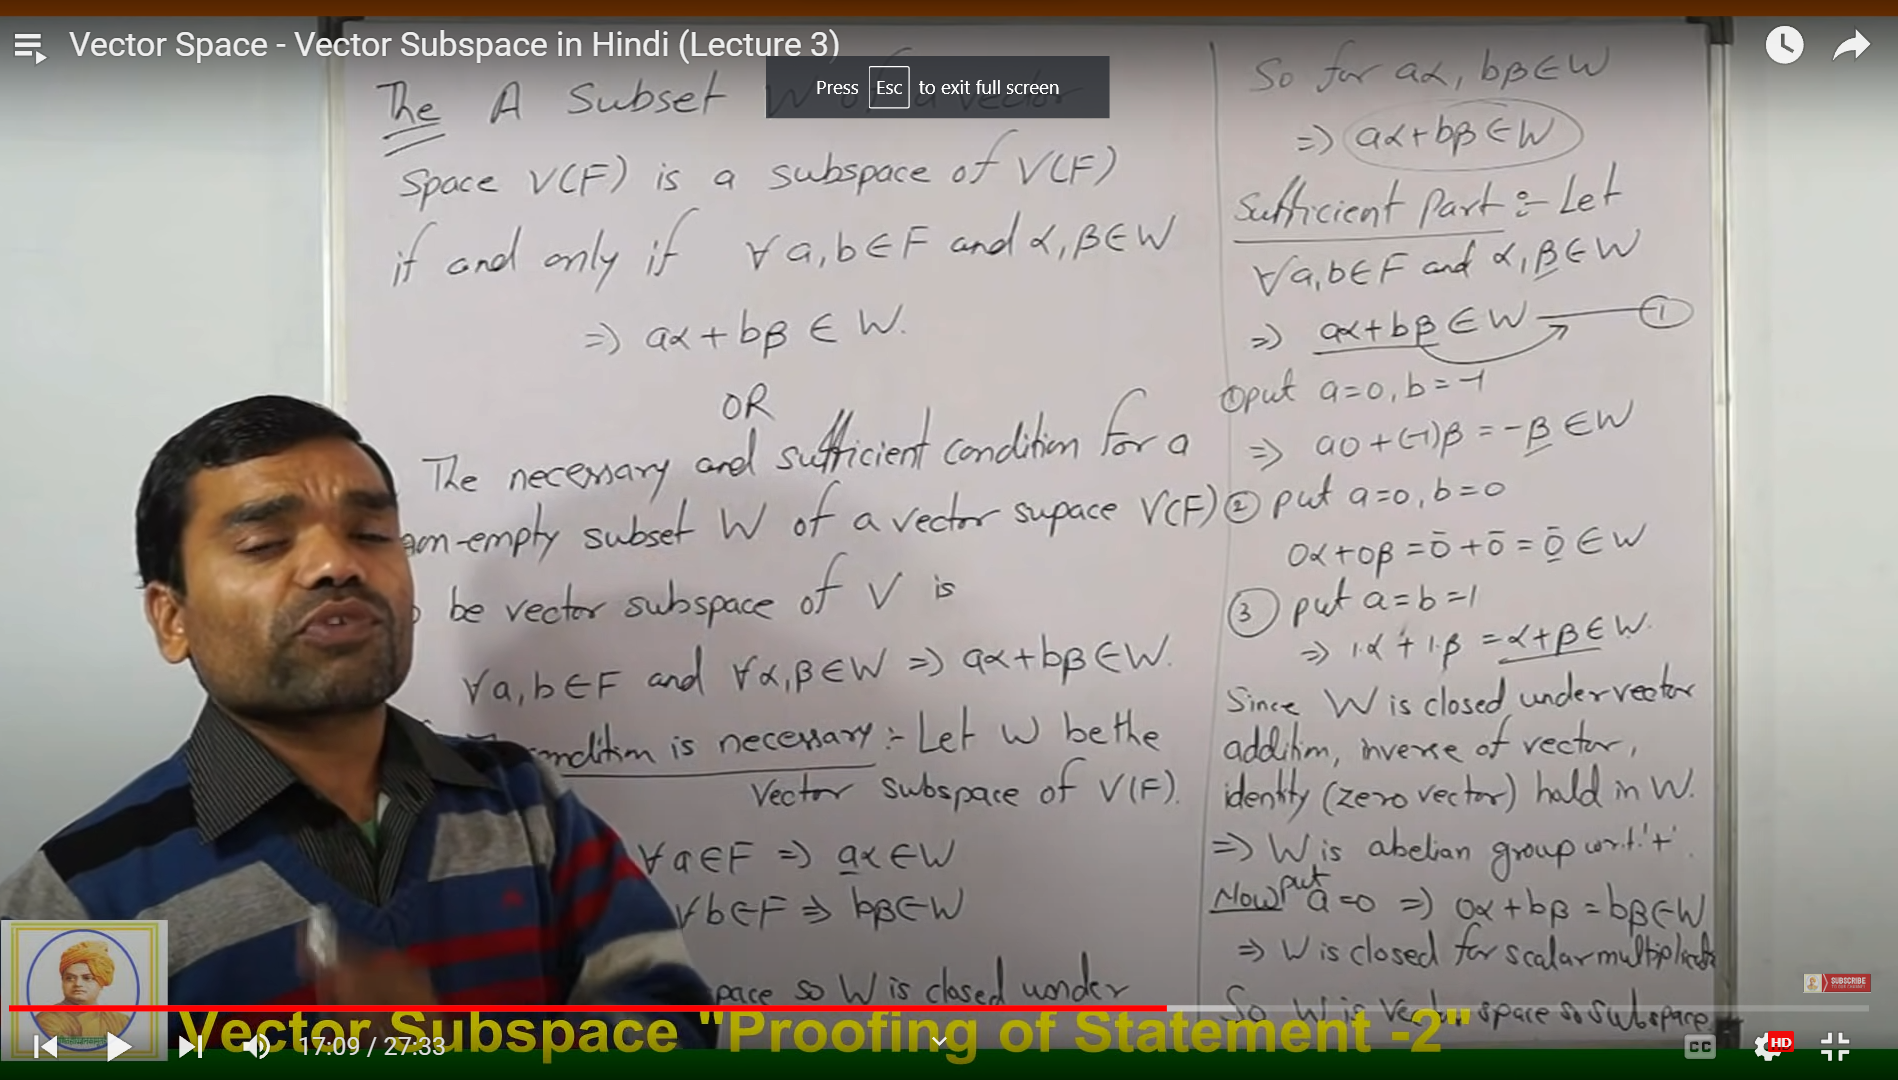 Vector Space - Vector Subspace in Hindi (Lecture 3)
Press Esc to exit full screen
The A Subset W of a vector
Space V(F) is a subspace of V(F)
if and only if ∀ a, b ∈ F and α, β ∈ W
=> aα + bβ ∈ W.
OR
The necessary and sufficient condition for a
non-empty subset W of a vector supace V(F)
be vector subspace of V is
∀ a, b ∈ F and ∀ α, β ∈ W => aα + bβ ∈ W.
condition is necessary :- Let W be the
vector subspace of V(F).
∀ a ∈ F => aα ∈ W
∀ b ∈ F => bβ ∈ W
space so W is closed under
So for aα, bβ ∈ W
=> aα + bβ ∈ W
Sufficient Part :- Let
∀ a, b ∈ F and α, β ∈ W
=> aα + bβ ∈ W — ①
① put a = 0, b = -1
=> a0 + (-1)β = -β ∈ W
② put a = 0, b = 0
0α + 0β = 0̄ + 0̄ = 0̄ ∈ W
③ put a = b = 1
=> 1.α + 1.β = α + β ∈ W.
Since W is closed under vector
addition, inverse of vector,
identity (zero vector) hold in W.
=> W is abelian group w.r.t. '+'.
Now put a = 0 => 0α + bβ = bβ ∈ W
=> W is closed for scalar multiplicatn
So W is vector space so subspace
SUBSCRIBE
Vector Subspace "Proofing of Statement -2"
17:09 / 27:33
CC
HD